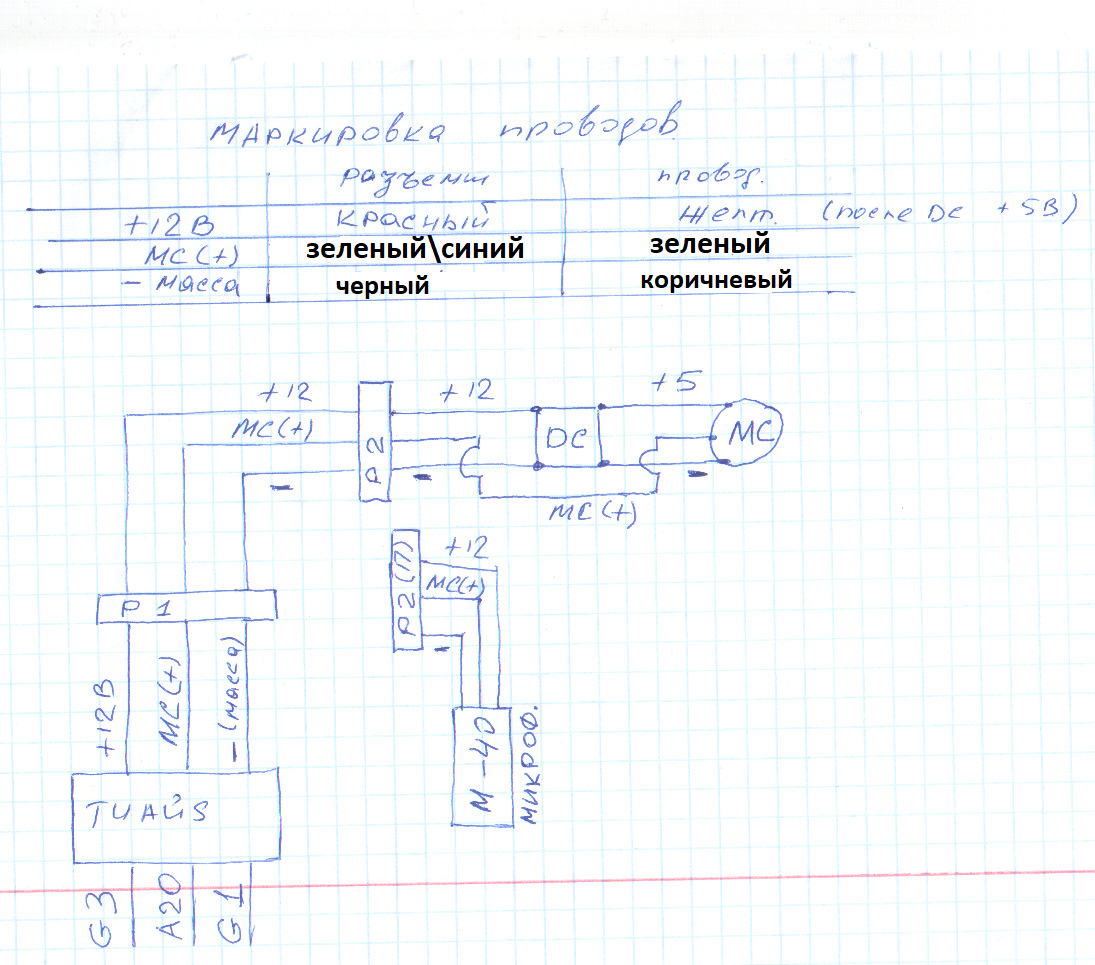 Маркировка проводов
разъемы провод.
+12В красный Желт. (после DC +5В)
МС(+) зеленый\синий зеленый
- масса черный коричневый
+12 +12 +5
МС(+)
P2 DC МС
- - -
МС(+)
+12
P2(П) МС(+)
-
P1
+12В МС(+) -(масса)
М-40 МИКРОФ.
G3 A20 G1